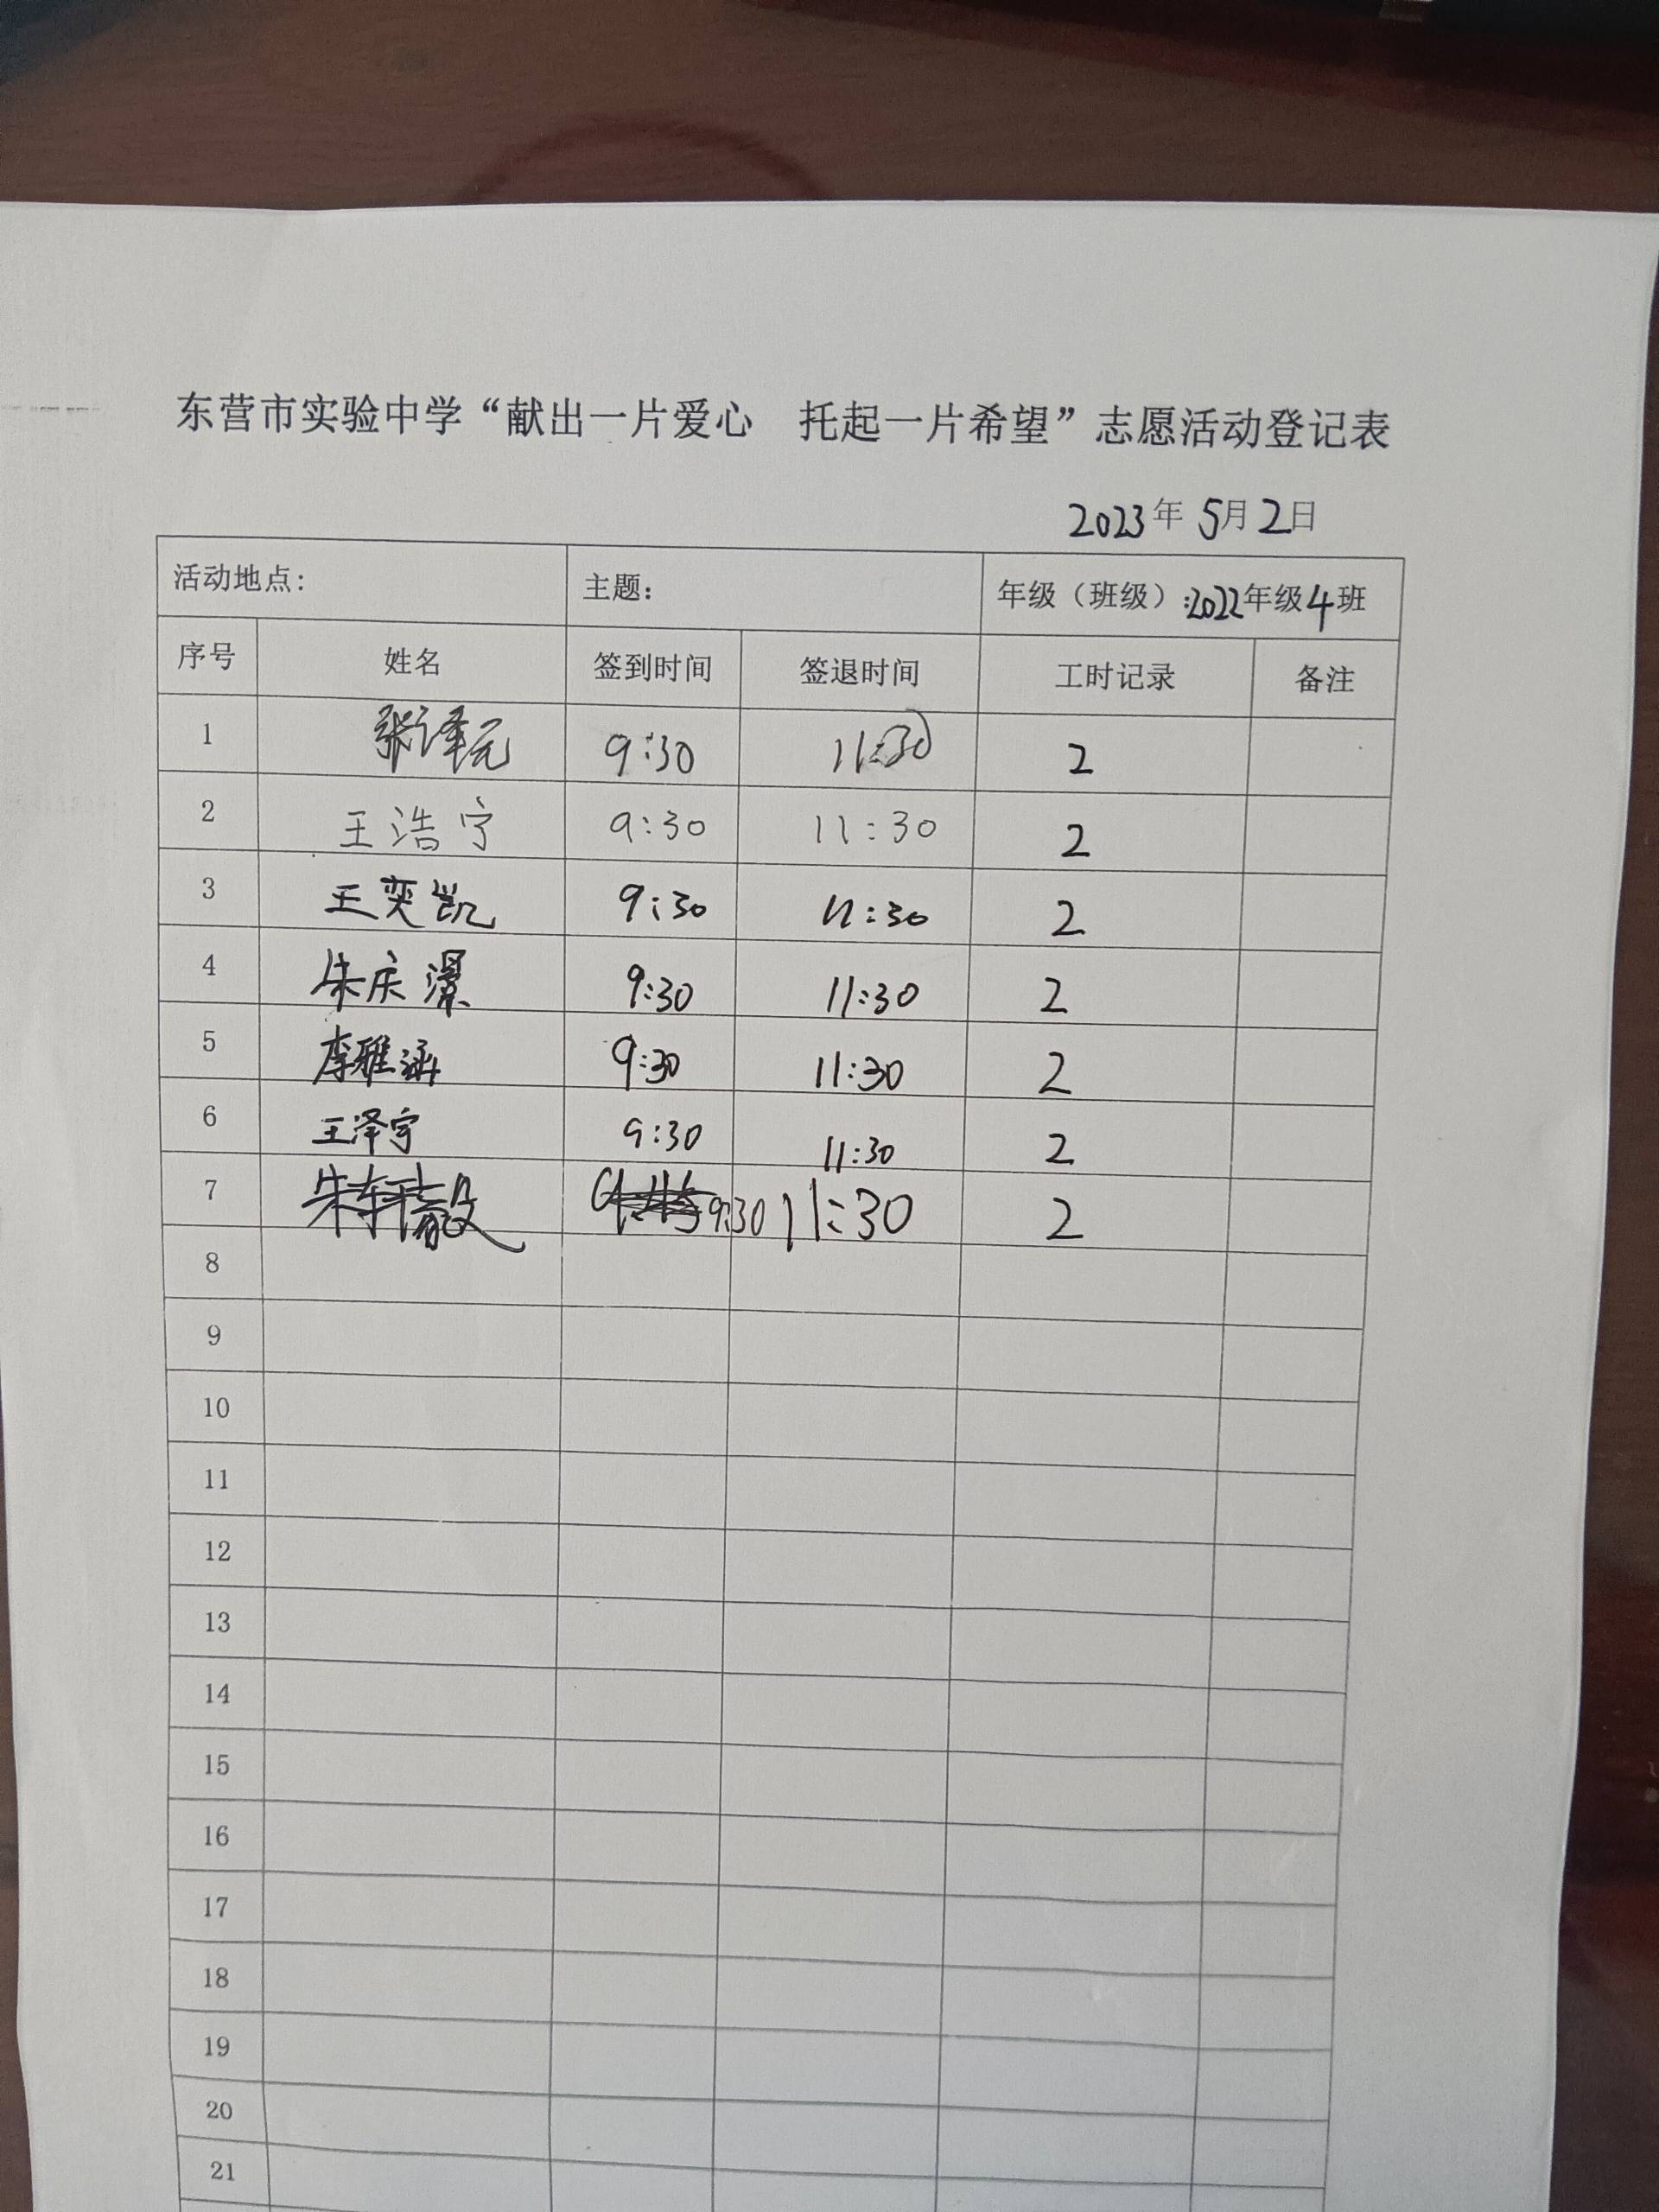 东营市实验中学“献出一片爱心 托起一片希望”志愿活动登记表
2023年 5月2日
活动地点: 主题: 年级（班级）:2022年级4班
序号 姓名 签到时间 签退时间 工时记录 备注
1 张译元 9:30 11:30 2
2 王浩宁 9:30 11:30 2
3 王奕凯 9:30 11:30 2
4 朱庆瀑 9:30 11:30 2
5 李雅涵 9:30 11:30 2
6 王泽宇 9:30 11:30 2
7 朱轩毅 9:30 11:30 2
8
9
10
11
12
13
14
15
16
17
18
19
20
21